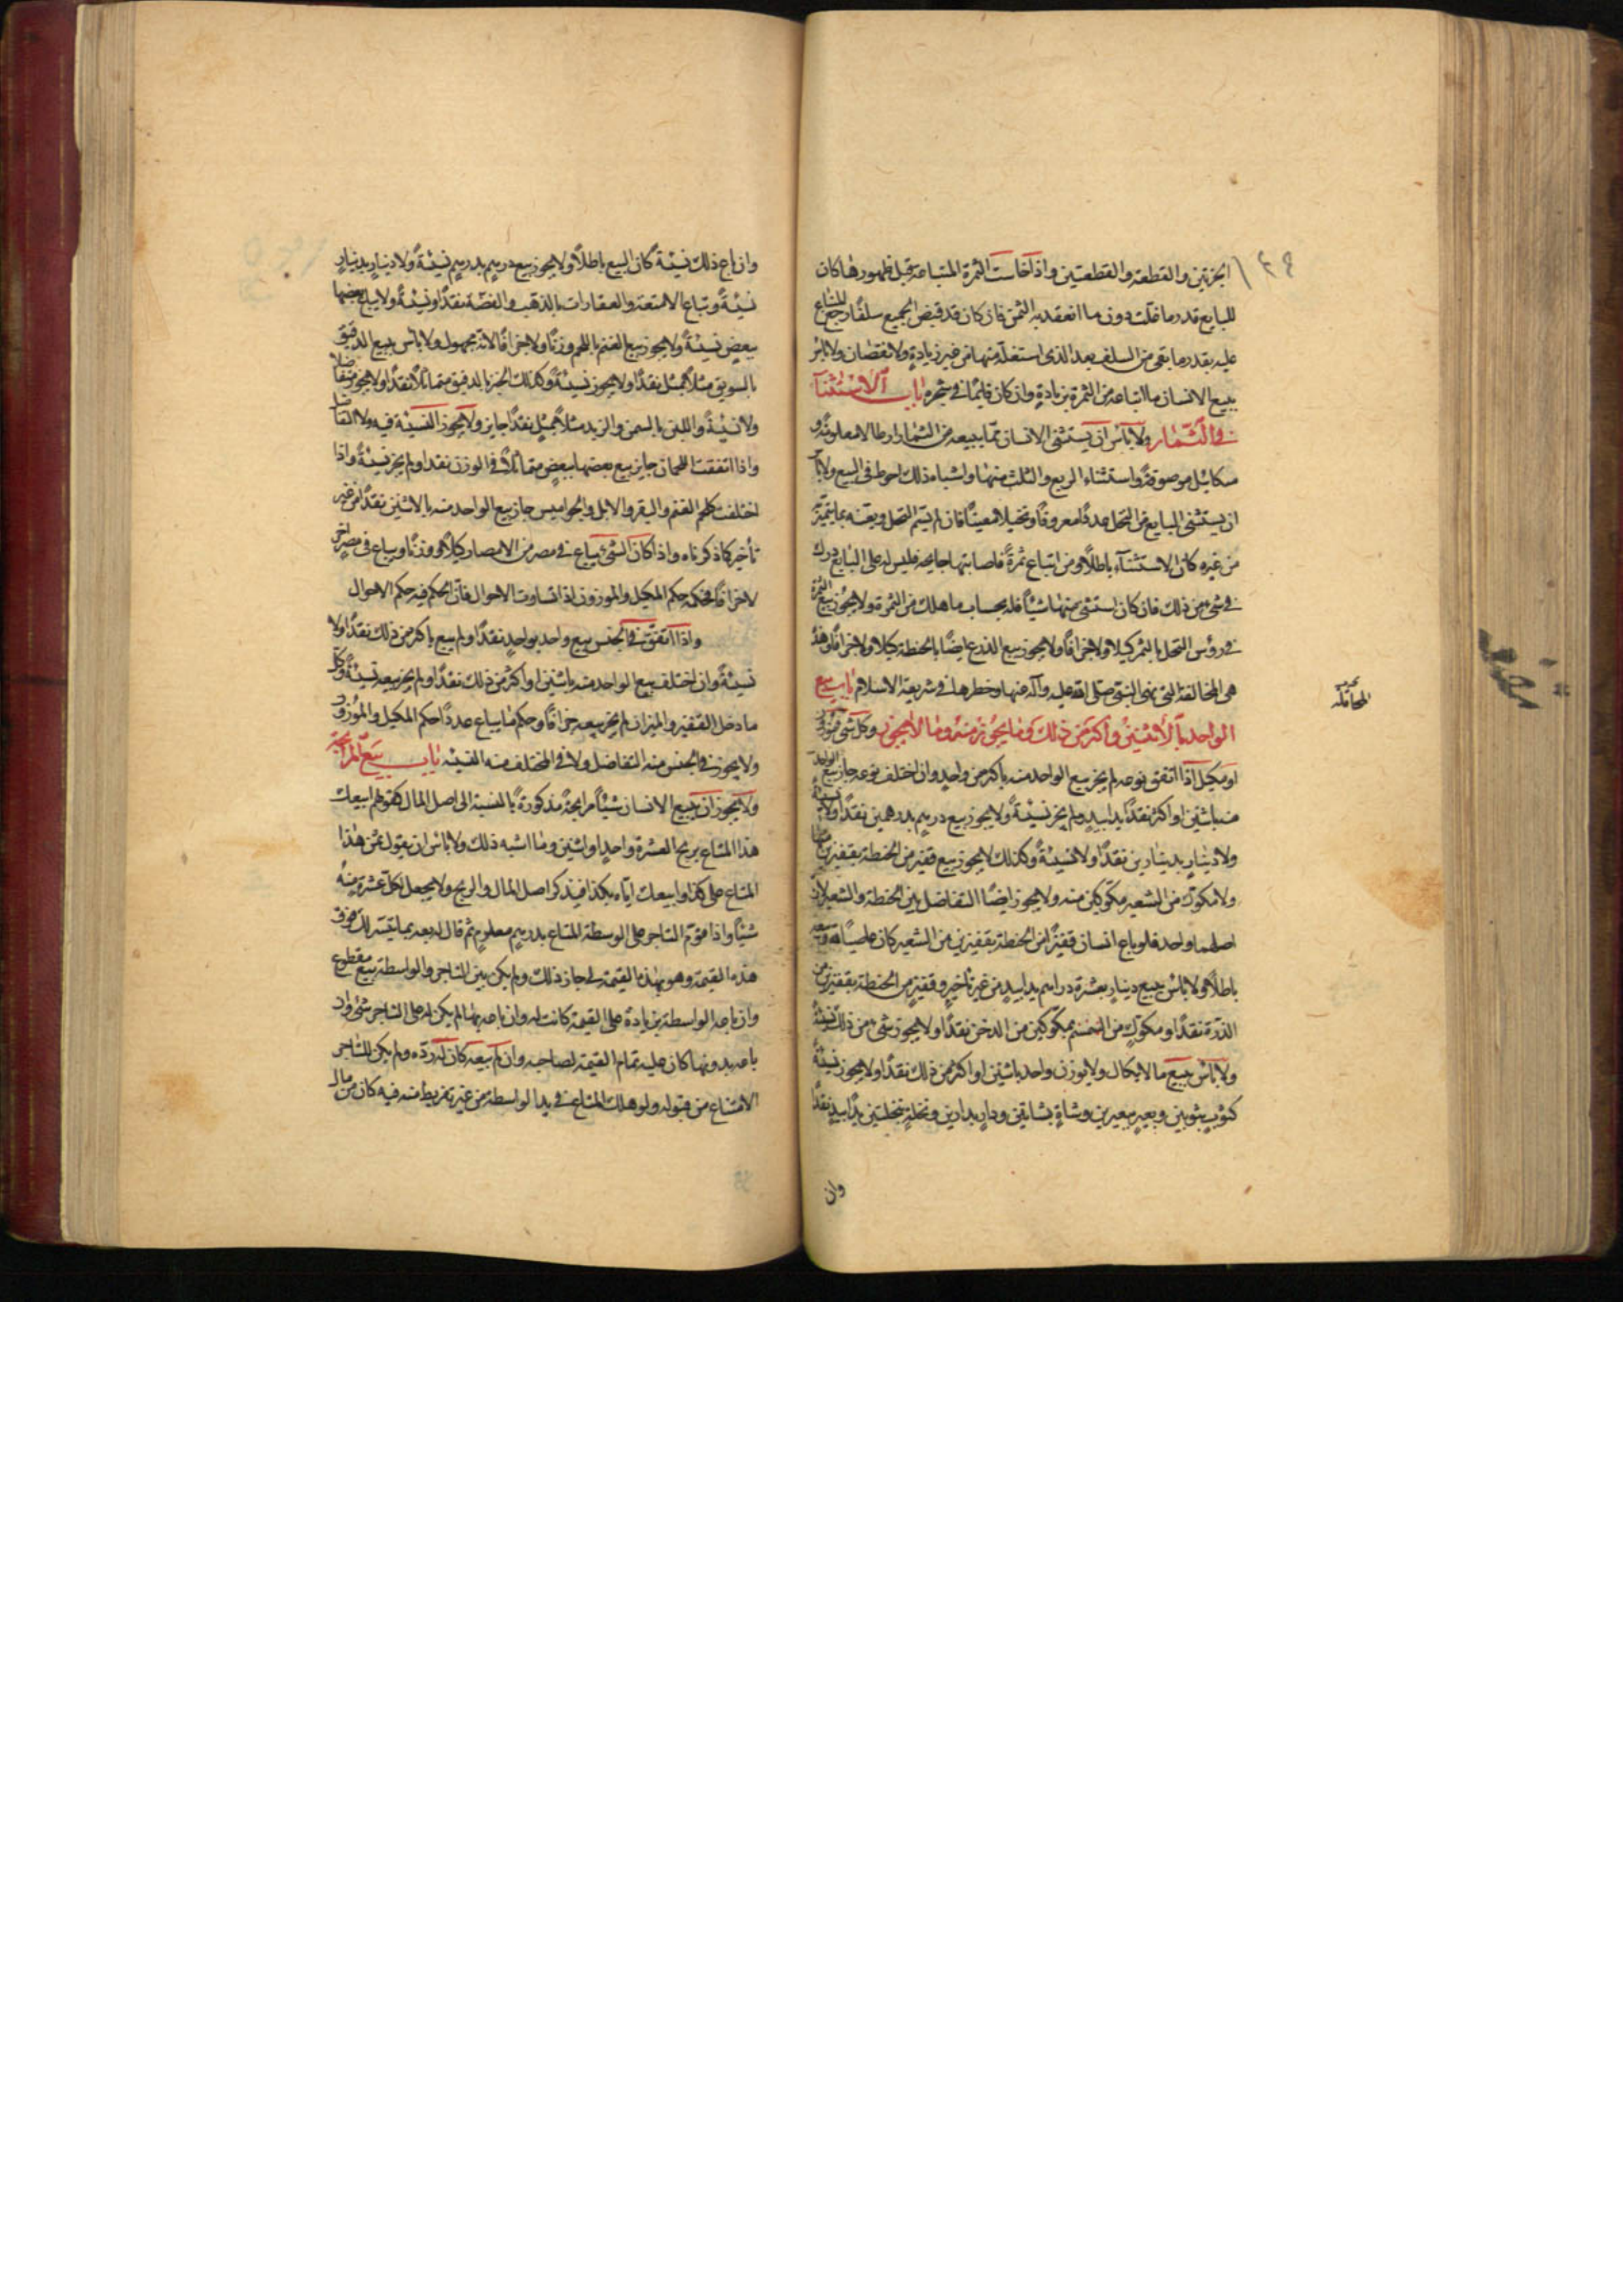 الجزتين والقطعة والقطعتين واذا خاست الثمرة المتباعة قبل ظهورها كان
للبايع قدر ما غلت دون ما انعقد به الثمن فان كان قد قبض الجميع سلفا رجع المبتاع
عليه بقدر ما بقى من السلف بعد الذى استغله منها من غير زيادة ولا نقصان ولا باس
ببيع الانسان ما ابتاعه من الثمرة بزيادة وان كان قايما في شجره باب الاستثناء
في الثمار ولا باس ان يستثنى الانسان مما يبيعه من الثمار ارطالا معلومة و
مكائيل موصوفة واستثناء الربع والثلث منها واشباه ذلك احوط في البيع ولا باس
ان يستثنى البايع من النخل عددا معروفا ونخيلا معينا فان لم يسم النخل ويعينه بما يتميز
من غيره كان الاستثناء باطلا ومن ابتاع ثمرة فاصابتها جايحة فليس له على البايع درك
في شئ من ذلك فان كان استثنى منها شيئا فله بحساب ما هلك من الثمرة ولا يجوز بيع الثمرة
في رؤس النخل بالتمر كيلا ولا جزافا ولا يجوز بيع الزرع ايضا بالحنطة كيلا ولا جزافا وهذه
هي المخالفة التي نهى النبي صلى الله عليه وآله عنها وحظرها في شريعة الاسلام باب بيع
المحاقلة
الواحد بالاثنين واكثر من ذلك وما يجوز منه وما لا يجوز وكل شئ موزون
او مكيل اذا اتفق نوعه لم يجز بيع الواحد منه باكثر من واحد وان اختلف نوعه جاز بيع الواحد
منه باثنين او اكثر نقدا يدا بيد ولم يجز نسيئة ولا يجوز بيع درهم بدرهمين نقدا ولا نسيئة
ولا دينار بدينارين نقدا ولا نسيئة وكذلك لا يجوز بيع قفيز من الحنطة بقفيزين منها
ولا مكوك من الشعير بمكوكين منه ولا يجوز ايضا التفاضل بين الحنطة والشعير لان
اصلهما واحد فلو باع انسان قفيزا من الحنطة بقفيزين من الشعير كان عاصيا لله وبيعه
باطلا ولا باس ببيع دينار بعشرة دراهم يدا بيد من غير تاخير وقفيز من الحنطة بقفيزين من
الذرة نقدا ومكوك من السمسم بمكوكين من الدخن نقدا ولا يجوز شئ من ذلك نسيئة
ولا باس ببيع ما لا يكال ولا يوزن واحد باثنين او اكثر من ذلك نقدا ولا يجوز نسيئة
كثوب بثوبين وبعير ببعيرين وشاة بشاتين ودار بدارين ونخلة بنخلتين يدا بيد نقدا
وان
وان باع ذلك نسيئة كان البيع باطلا ولا يجوز بيع درهم بدرهم نسيئة ولا دينار بدينار
نسيئة وتباع الامتعة والعقارات بالذهب والفضة نقدا ونسيئة ولا يباع بعضها
ببعض نسيئة ولا يجوز بيع الغنم باللحم وزنا ولا جزافا لانه مجهول ولا باس ببيع الدقيق
بالسويق مثلا بمثل نقدا ولا يجوز نسيئة وكذلك الخبز بالدقيق متماثلا نقدا ولا يجوز متفاضلا
ولا نسيئة واللبن بالسمن والزبد مثلا بمثل نقدا جايز ولا يجوز النسيئة فيه ولا التفاضل
واذا اتفقت اللحمان جايز بيع بعضها ببعض متماثلا في الوزن نقدا ولم يجز نسيئة واذا
اختلفت كلحم الغنم والبقر والابل والجواميس جاز بيع الواحد منه بالاثنين نقدا من غير
تأخير كما ذكرناه واذا كان الشئ يباع في مصر من الامصار كيلا او وزنا ويباع في مصر اخر
جزافا فحكمه حكم المكيل والموزون اذا تساوت الاحوال فان الحكم فيه حكم الاحوال
واذا اتفق في الجنس بيع واحد بواحد نقدا ولم يبع باكثر من ذلك نقدا ولا
نسيئة وان اختلف بيع الواحد منه باثنين او اكثر من ذلك نقدا ولم يجز بيعه نسيئة وكل
ما دخل القفيز والميزان لم يجز بيعه جزافا وحكم ما يباع عددا حكم المكيل والموزون
ولا يجوز في الجنس منه التفاضل ولا في المختلف منه النسيئة باب بيع المرابحة
ولا يجوز ان يبيع الانسان شيئا مرابحة مذكورة بالنسبة الى اصل المال كقولهم ابيعك
هذا المتاع بربح العشرة واحد او اثنين وما اشبه ذلك ولا باس ان يقول ثمن هذا
المتاع على كذا وابيعك اياه بكذا فيذكر اصل المال والربح ولا يجعل لكل عشرة منه
شيئا واذا قوم التاجر على الوسطة المتاع بدرهم معلوم ثم قال له بعه بما تيسر لك فوق
هذه القيمة وهو بهذه القيمة لي جاز ذلك ولم يكن بين التاجر والواسطة بيع مقطوع
وان باعه الواسطة بزيادة على القيمة كانت له وان باعه بها لم يكن له على التاجر شئ وان
باعه بدونها كان عليه تمام القيمة لصاحبه وان لم يبعه كان له رده ولم يكن للتاجر
الامتناع من قبوله ولو هلك المتاع في يد الواسطة من غير تفريط منه فيه كان من مال